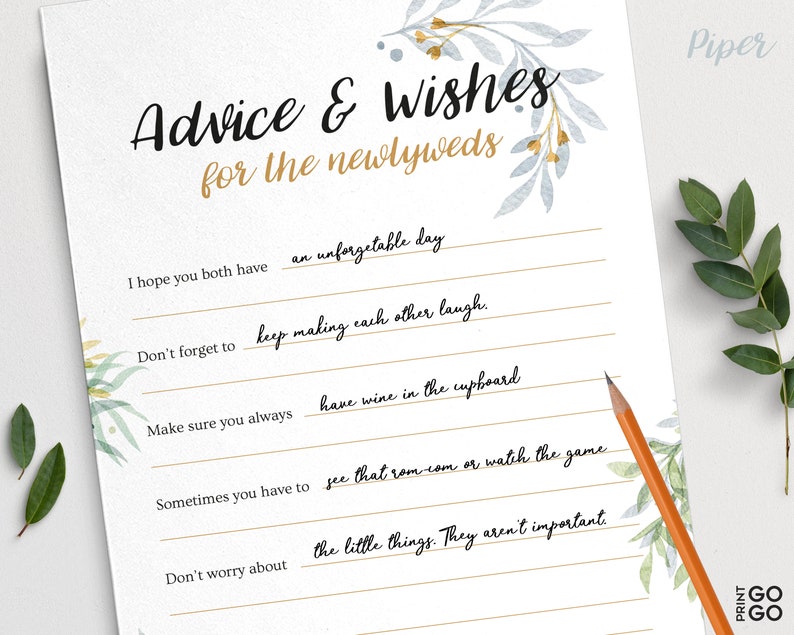 Piper
Advice & Wishes
for the newlyweds
I hope you both have an unforgetable day
Don't forget to keep making each other laugh.
Make sure you always have wine in the cupboard
Sometimes you have to see that rom-com or watch the game
Don't worry about the little things. They aren't important.
PRINT GO GO